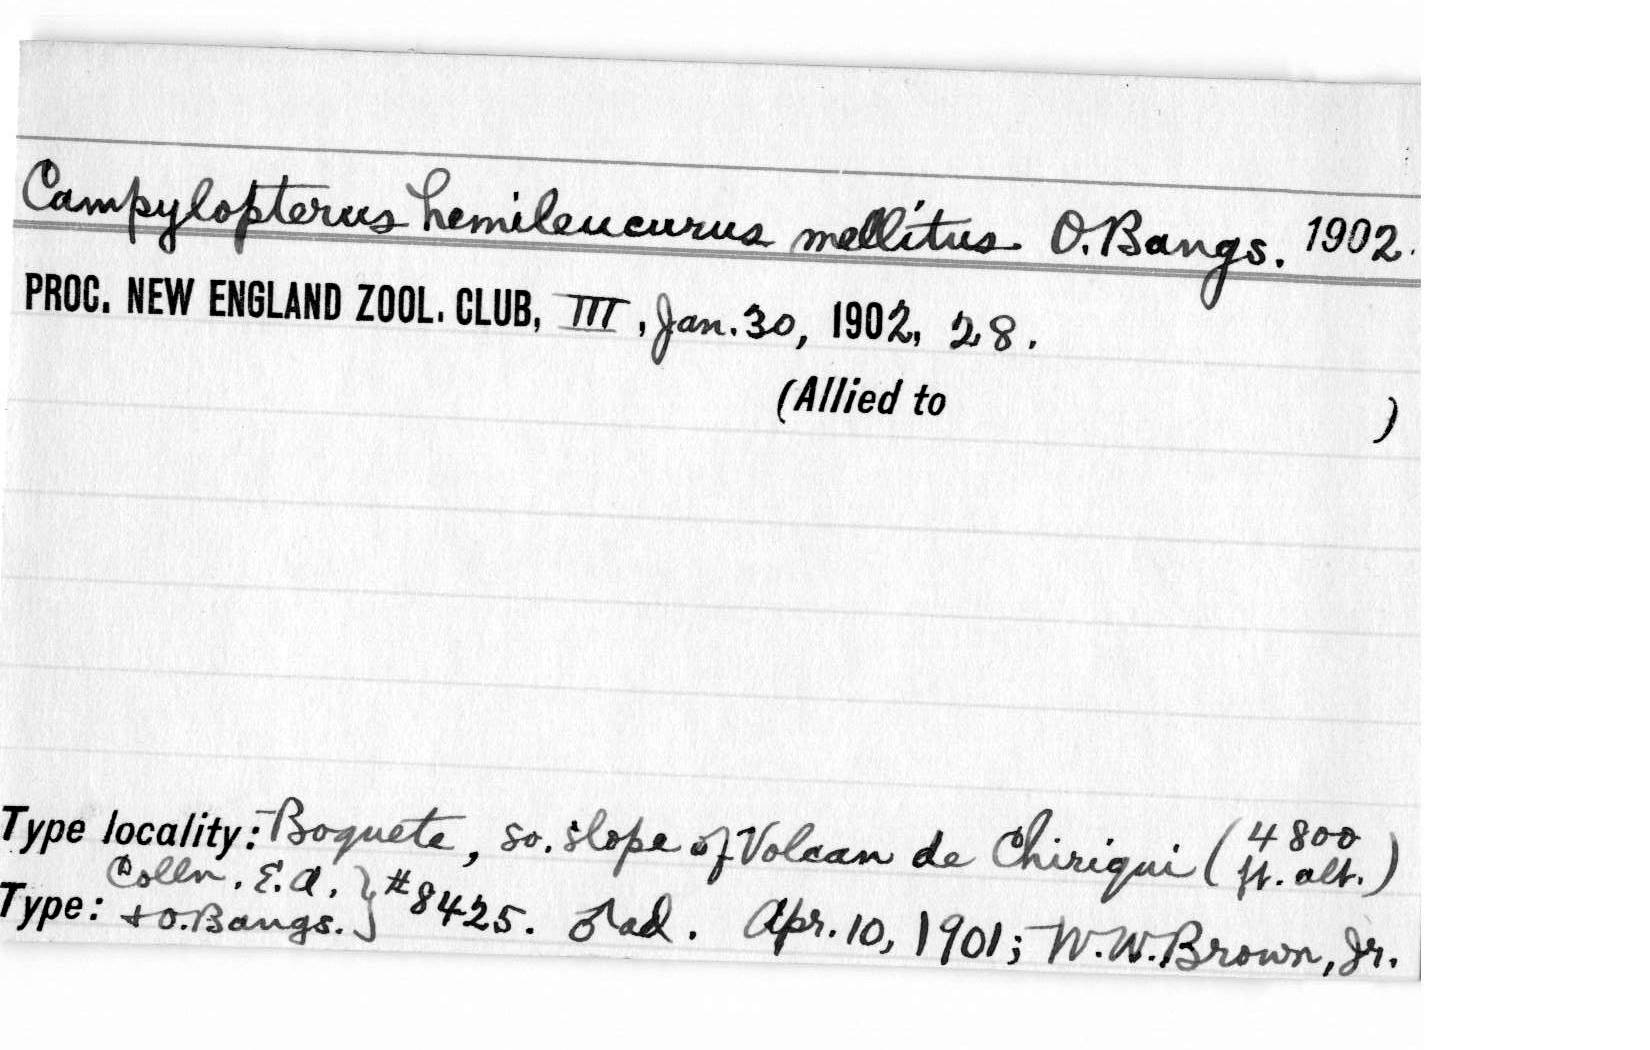 Campylopterus hemileucurus mellitus O. Bangs. 1902.
PROC. NEW ENGLAND ZOOL. CLUB, III, Jan. 30, 1902, 28.
(Allied to )
Type locality: Boquete, so. slope of Volcan de Chiriqui (4800 ft. alt.)
Type: Colln. E.A. & O. Bangs. } #8425. ♂ ad. Apr. 10, 1901; W.W. Brown, Jr.